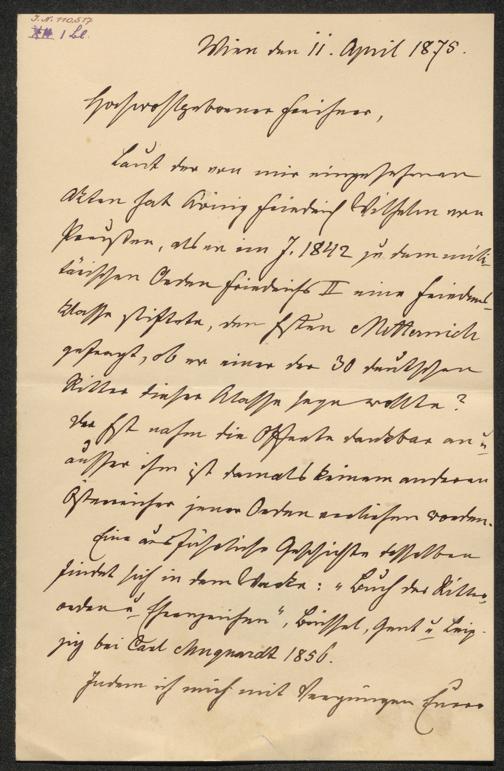 J. N. 110.517
1 Bl.
Wien den 11. April 1875.
Hochwohlgeborener Freiherr,
Laut der von mir eingesehenen
Akten hat König Friedrich Wilhelm von
Preußen, als er im J. 1842 zu dem mili-
tärischen Orden Friedrichs II eine Friedens-
klasse stiftete, den Fsten Metternich
gefragt, ob er einer der 30 deutschen
Ritter dieser Classe seyn wollte?
Der Fst nahm die Offerte dankbar an u
außer ihm ist damals keinem anderen
Österreicher jener Orden verliehen worden.
Eine ausführliche Geschichte desselben
findet sich in dem Werke: "Buch der Ritter-
orden u Ehrenzeichen", Brüssel, Gent u Leip-
zig bei Carl Muquardt 1856.
Indem ich mich mit Vergnügen Euer